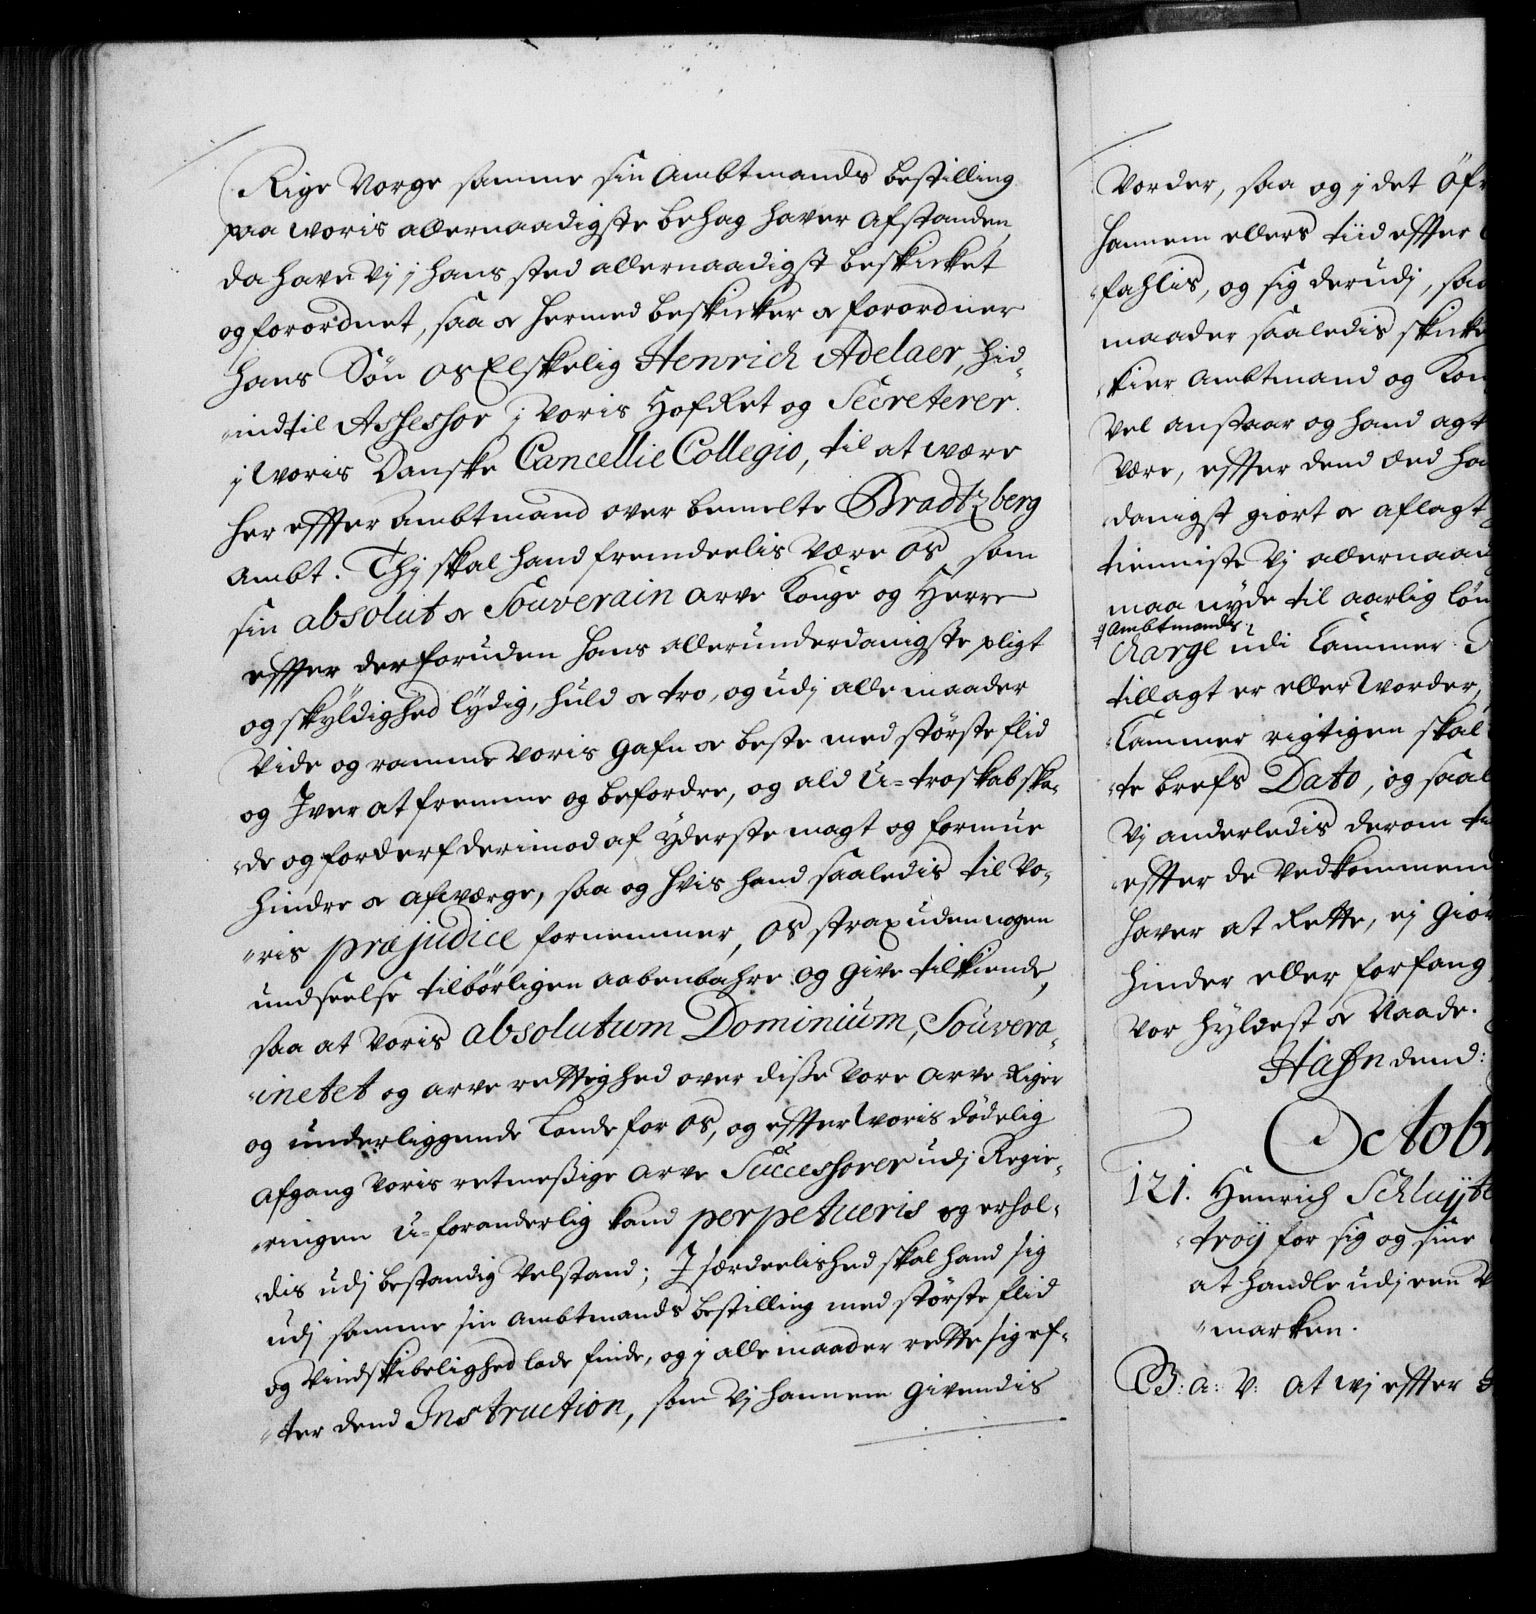 Rige Norge samme sin Ambtmands bestilling
paa woris allernaadigste behag haver afstanden,
da have vj j hans sted allernaadigst beskicket
og forordnet, saa og hermed beskicker og forordner
hans Søn os Elskelig Henrich Adelaer, hid-
indtil Assessor j voris HofRet og Secreterer
j woris Danske Cancellie Collegio, til at være
her effter Ambtmand over bemelte Bradtzberg
Ambt. Thj skal hand fremdeelis være os som
sin absolut og Souverain arve Konge og Herre
effter der foruden hans allerunderdanigste pligt
og skyldighed lydig, huld og tro, og udj alle maader
vide og ramme voris gafn og beste med største flid
og Iver at fremme og befordre, og ald U-troskab ska-
de og forderf derimod af yderste magt og formue
hindre og afwærge, saa og hvis hand saaledis til vo-
ris præjudice fornemmer, os strax uden nogen
undseelse tilbørligen aabenbahre og give tilkiende,
saa at voris absolutum Dominium, Souvera-
inetet og arve rettighed over disse vore arve Riger
og underliggende Lande for os, og effter woris dødelig
afgang voris retmessige arve Successorer udj Regie-
ringen U-foranderlig kand perpetueris og erhol-
dis udj bestandig velstand; Jsærdeelished skal hand sig
udj samme sin Ambtmands bestilling med største flid
og vindskibelighed lade finde, og j alle maader rette sig ef-
ter dend Instruction, som vj hannem givendis
vorder, saa og j det øfr
hannem ellers tiid effter
fahlis, og sig derudj, saa
maader saaledis skicke
kier Ambtmand og Kon
vel anstaar og hand agt
være, effter dend Æed ha
danigst giort og aflagt
tienniste vj allernaad
maa nyde til aarlig løn
Ambtmands
Charge udi Cammer
tillagt er eller worder,
Cammer rigtigen skal
te brefs Dato, og saal
vj anderledis derom ti
effter de vedkommend
haver at Rette, ej giør
hinder eller forfang
vor hyldest og Naade.
Hafn dend:
Octob
121. Henrich Schluyte
troy for sig og sine
at handle udj een
marken.
G: a: V: at wj effter